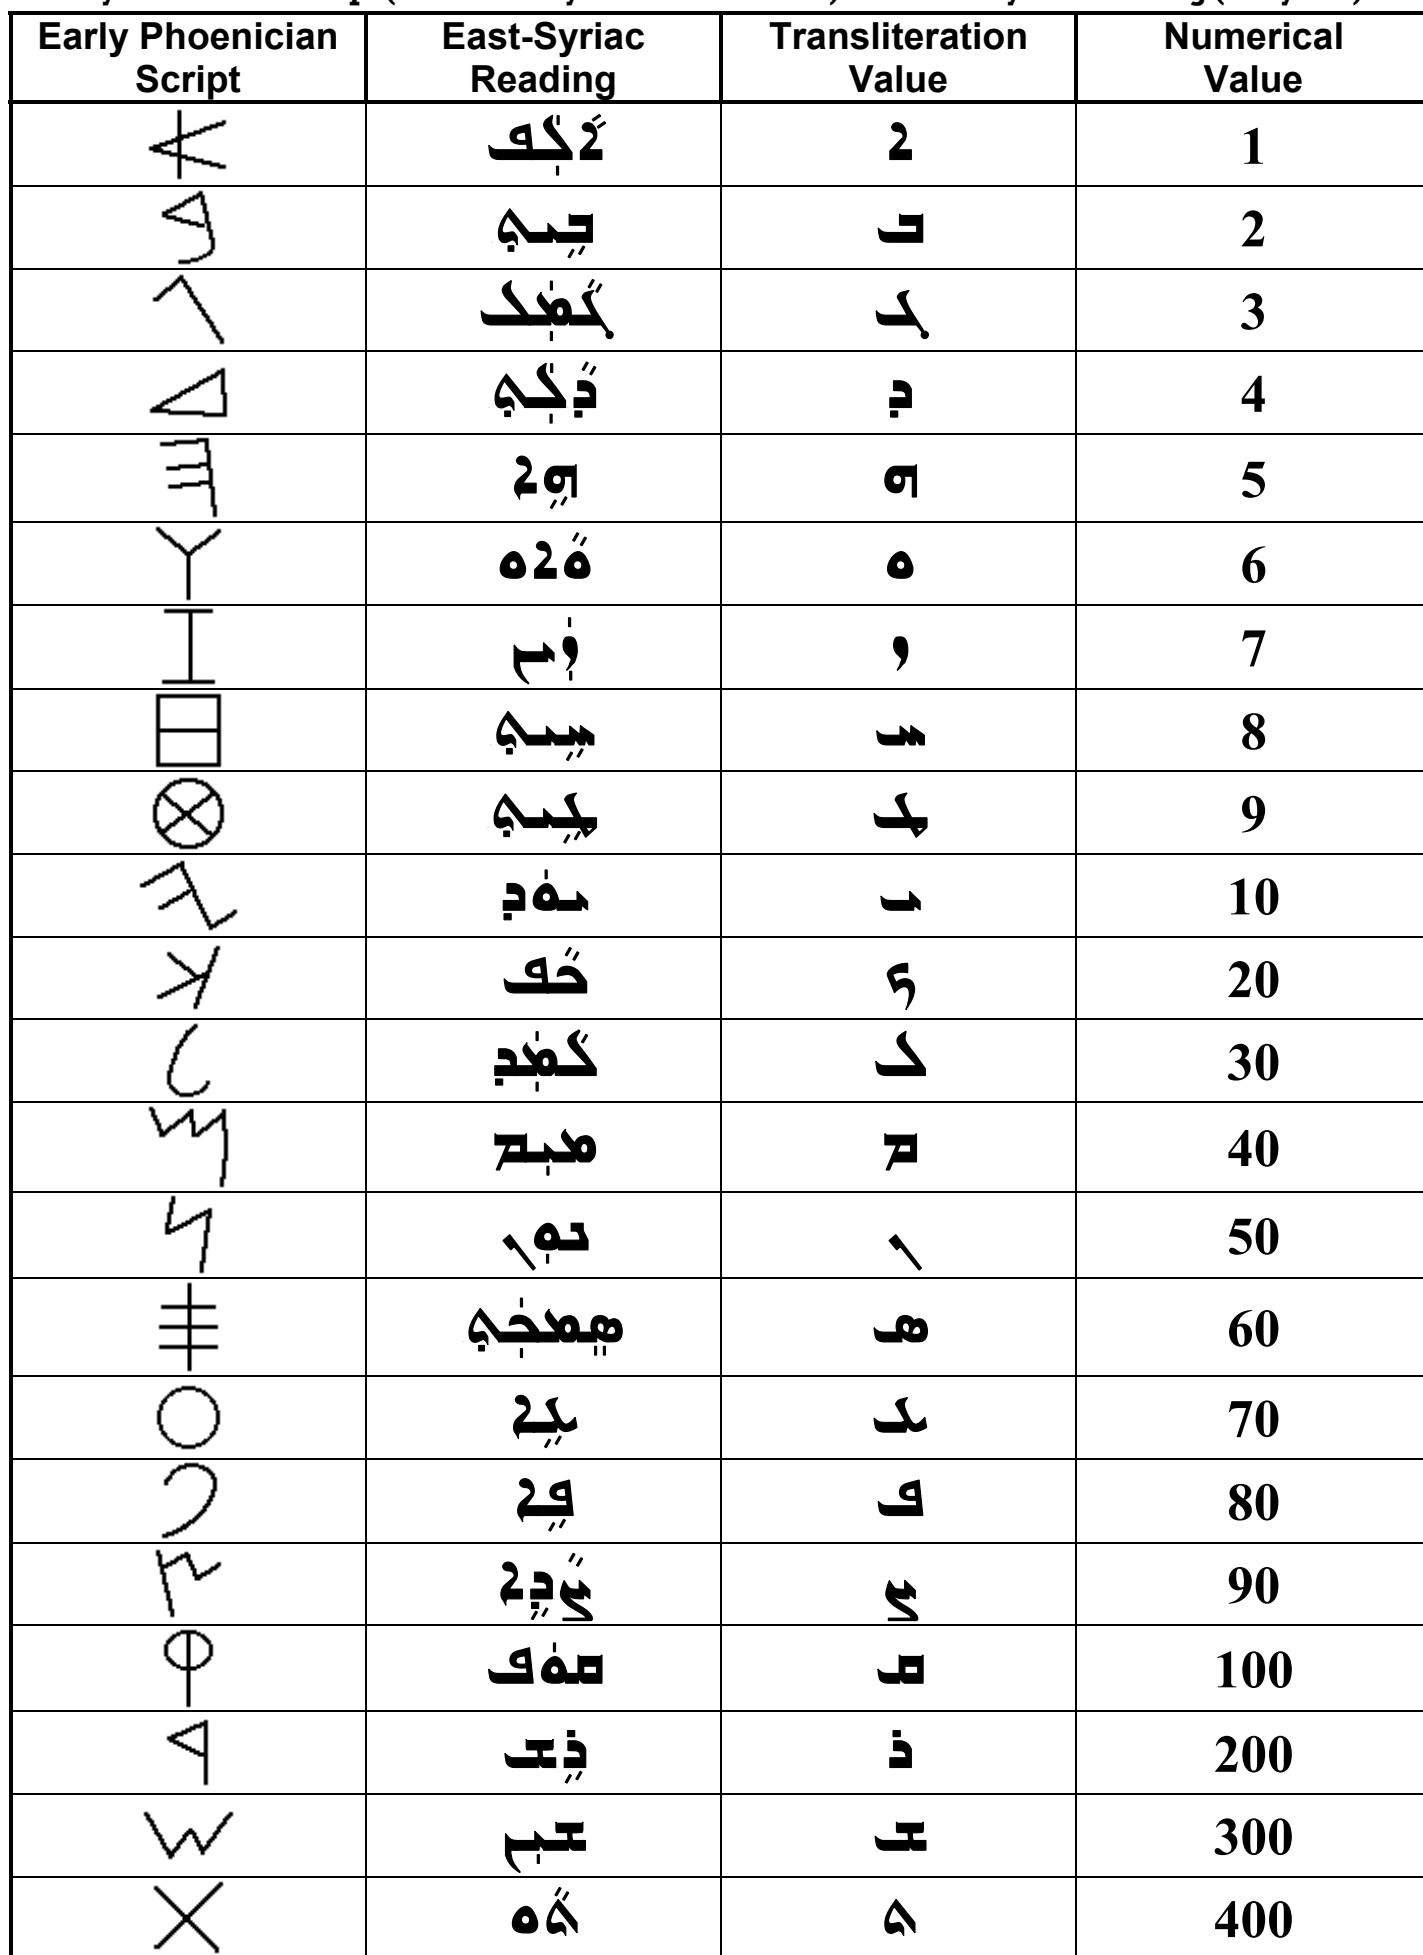 Early Phoenician Script East-Syriac Reading Transliteration Value Numerical Value
𐤀 ܐܵܠܲܦ ܐ 1
𐤁 ܒܹܝܬ݂ ܒ 2
𐤂 ܓܵܡܲܠ ܓ 3
𐤃 ܕܵܠܲܬ݂ ܕ 4
𐤄 ܗܹܐ ܗ 5
𐤅 ܘܵܐܘ ܘ 6
𐤆 ܙܲܝܢ ܙ 7
𐤇 ܚܹܝܬ݂ ܚ 8
𐤈 ܛܹܝܬ݂ ܛ 9
𐤉 ܝܘܿܕ ܝ 10
𐤊 ܟܵܦ ܟ 20
𐤋 ܠܵܡܲܕ ܠ 30
𐤌 ܡܝܼܡ ܡ 40
𐤍 ܢܘܼܢ ܢ 50
𐤎 ܣܸܡܟܲܬ݂ ܣ 60
𐤏 ܥܹܐ ܥ 70
𐤐 ܦܹܐ ܦ 80
𐤑 ܨܵܕܹܐ ܨ 90
𐤒 ܩܘܿܦ ܩ 100
𐤓 ܪܹܫ ܪ 200
𐤔 ܫܝܼܢ ܫ 300
𐤕 ܬܵܘ ܬ 400